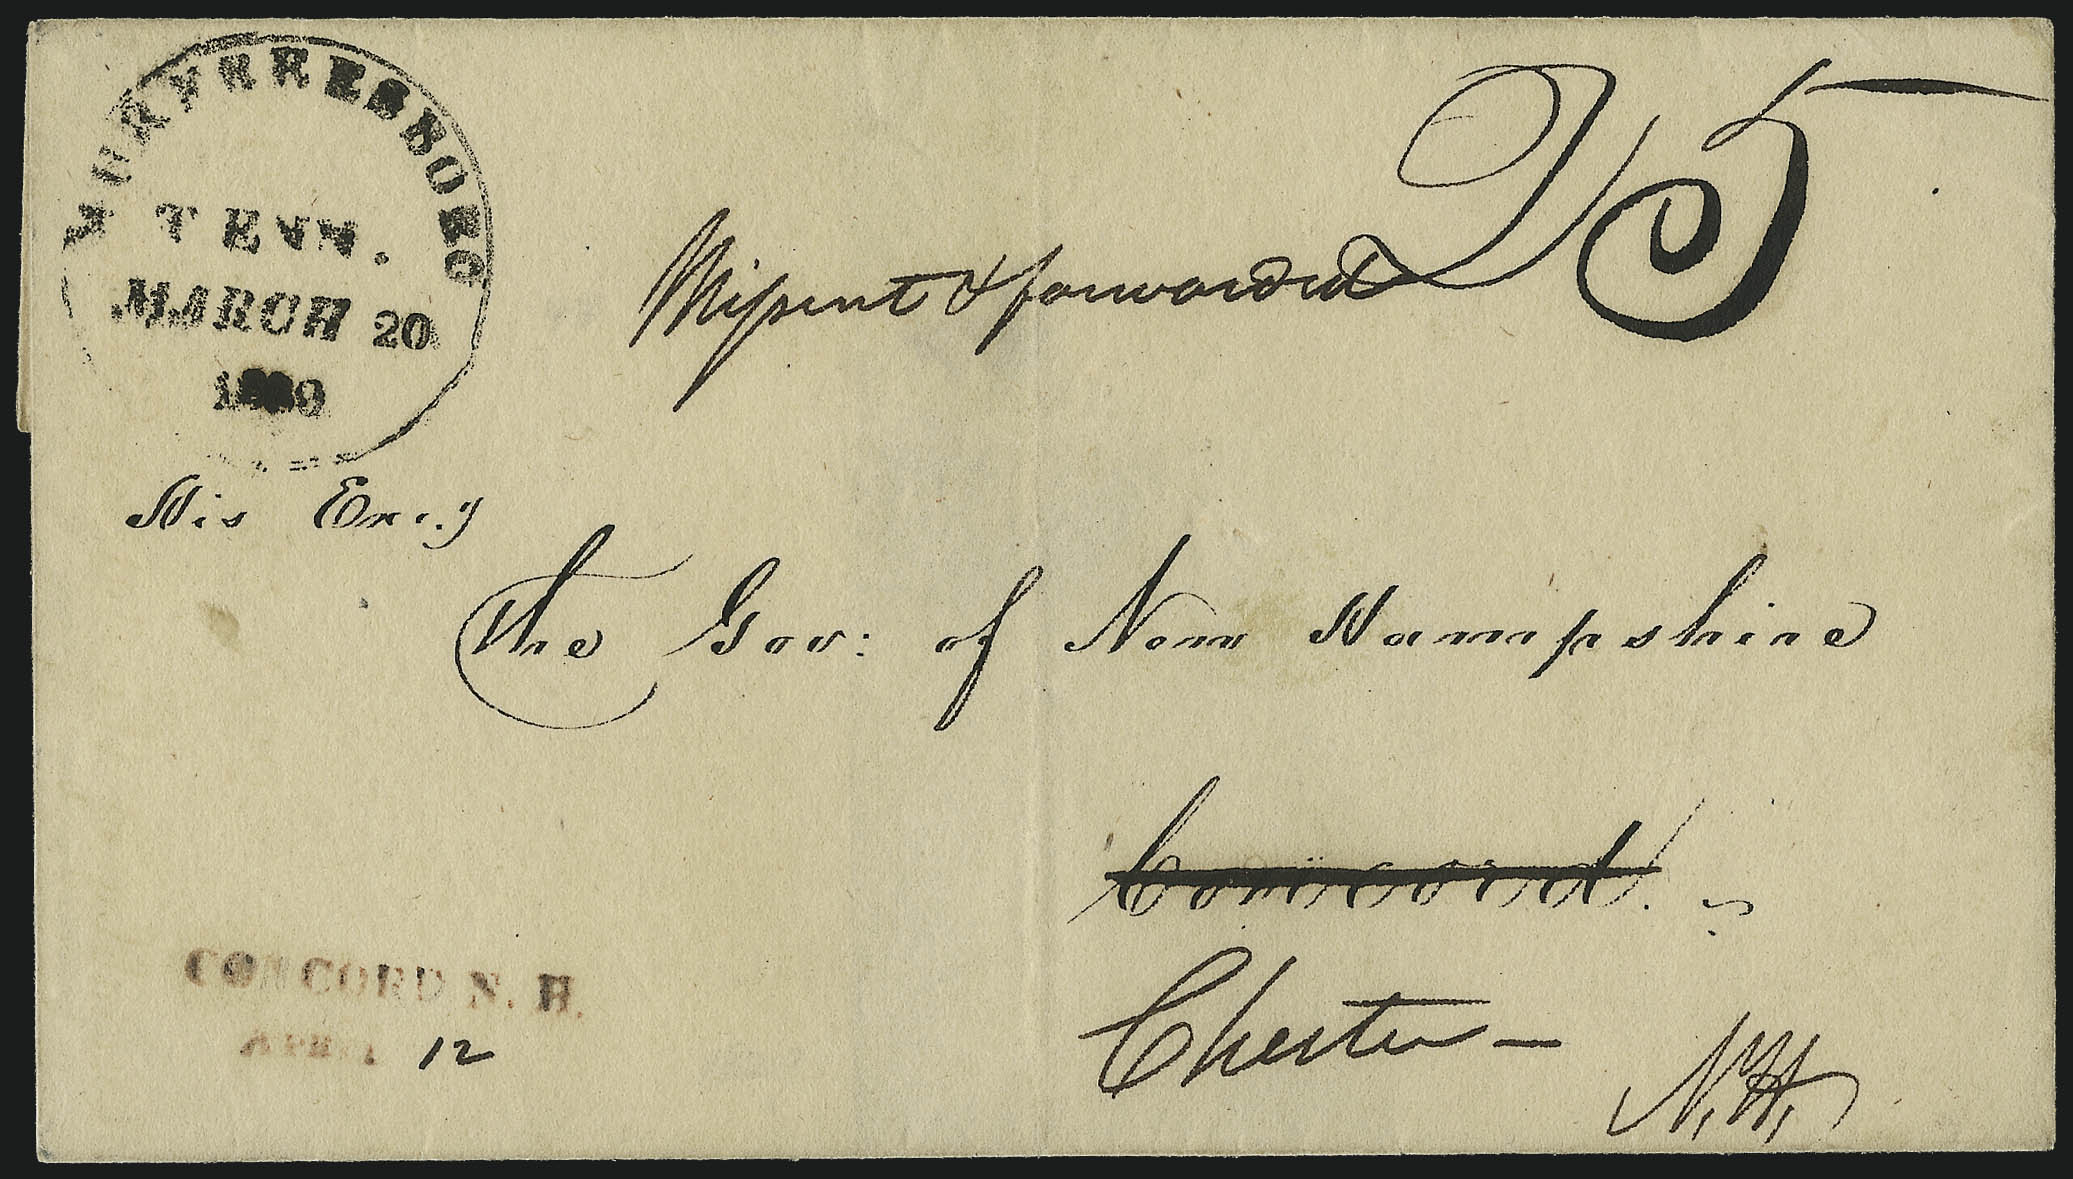 MURFREESBORO
TENN.
MARCH 20
25
Missent & forwarded
His Exc.y
The Gov: of New Hampshire
Concord.
Chester —
N.H.
CONCORD N. H.
APRIL 12